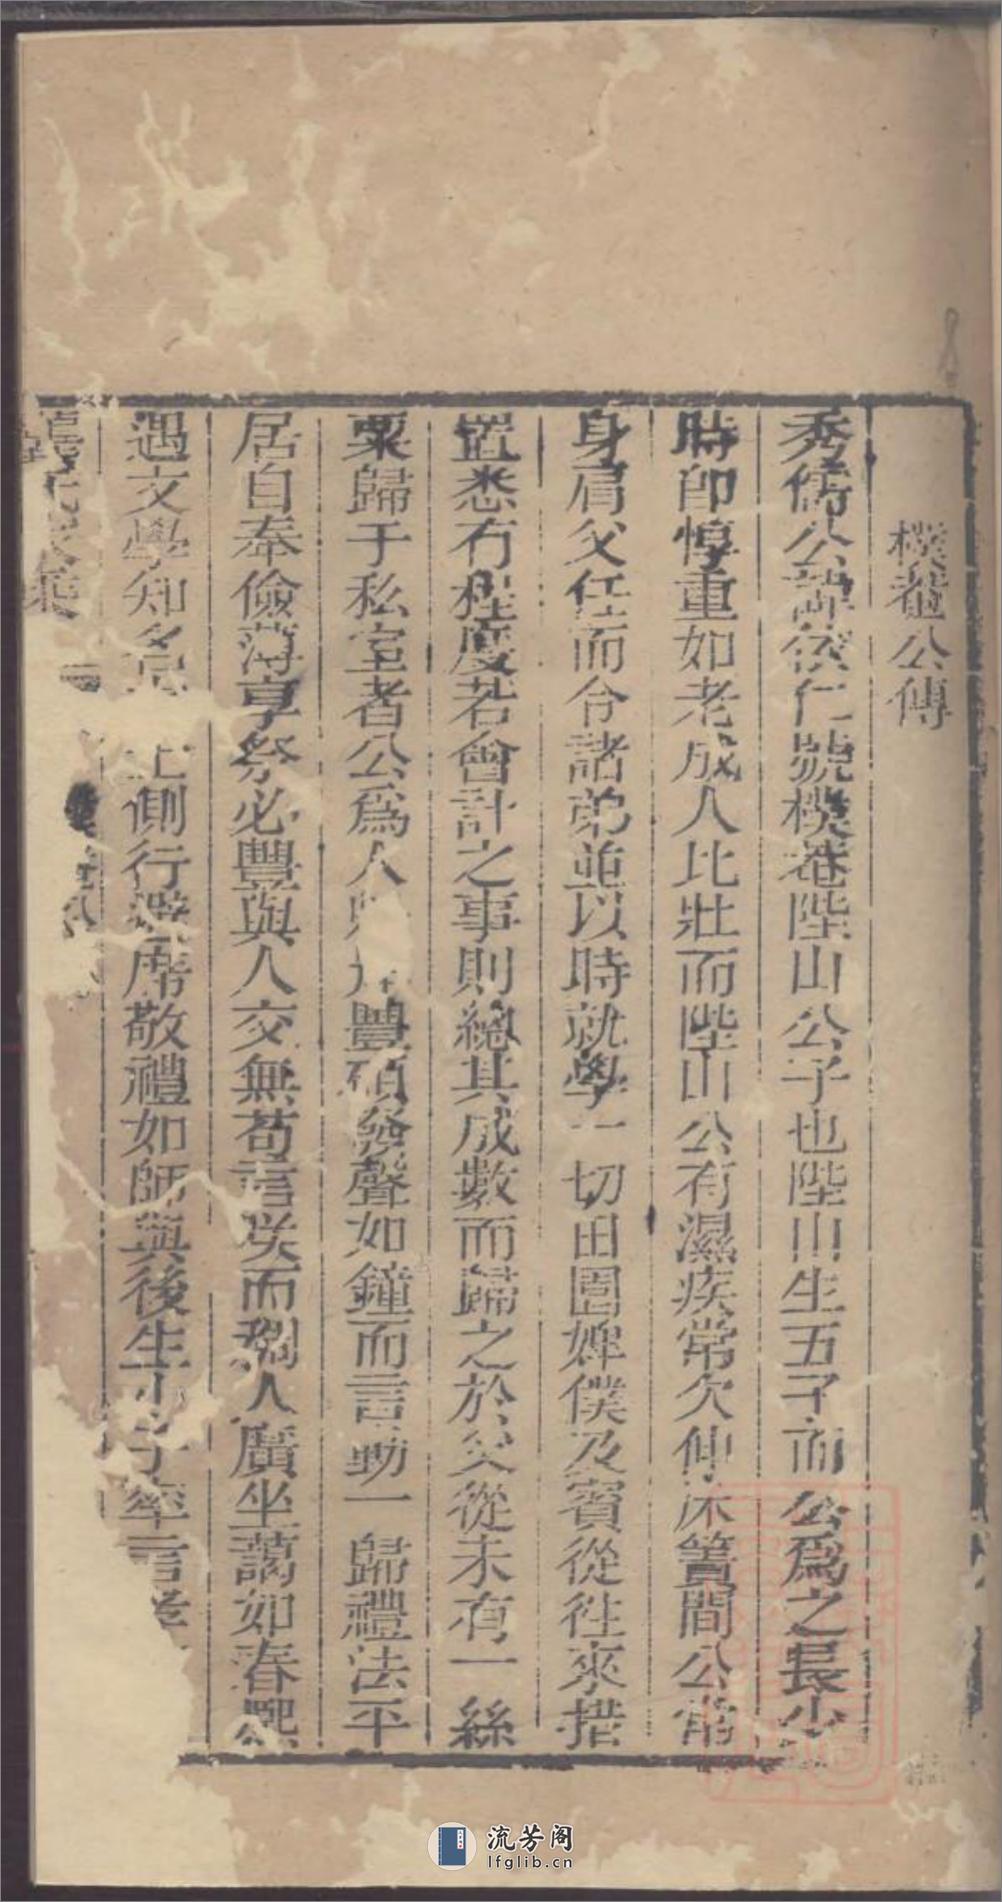 樸菴公傳
秀儒公諱依仁號樸菴陛山公子也陛山生五子而公爲之長少
時卽惇重如老成人比壯而陛山公有濕疾常欠伸床簀間公常
身肩父任而令諸弟並以時就學一切田園婢僕及賓從往來措
置悉有程度若會計之事則總其成數而歸之於父從未有一絲
粟歸于私室者公爲人豐碩發聲如鐘而言動一歸禮法平
居自奉儉薄享祭必豐與人交無苟言笑而稠人廣坐藹如春熙
遇文學知名側行避席敬禮如師與後生小子率言孝
流芳阁
lfglib.cn